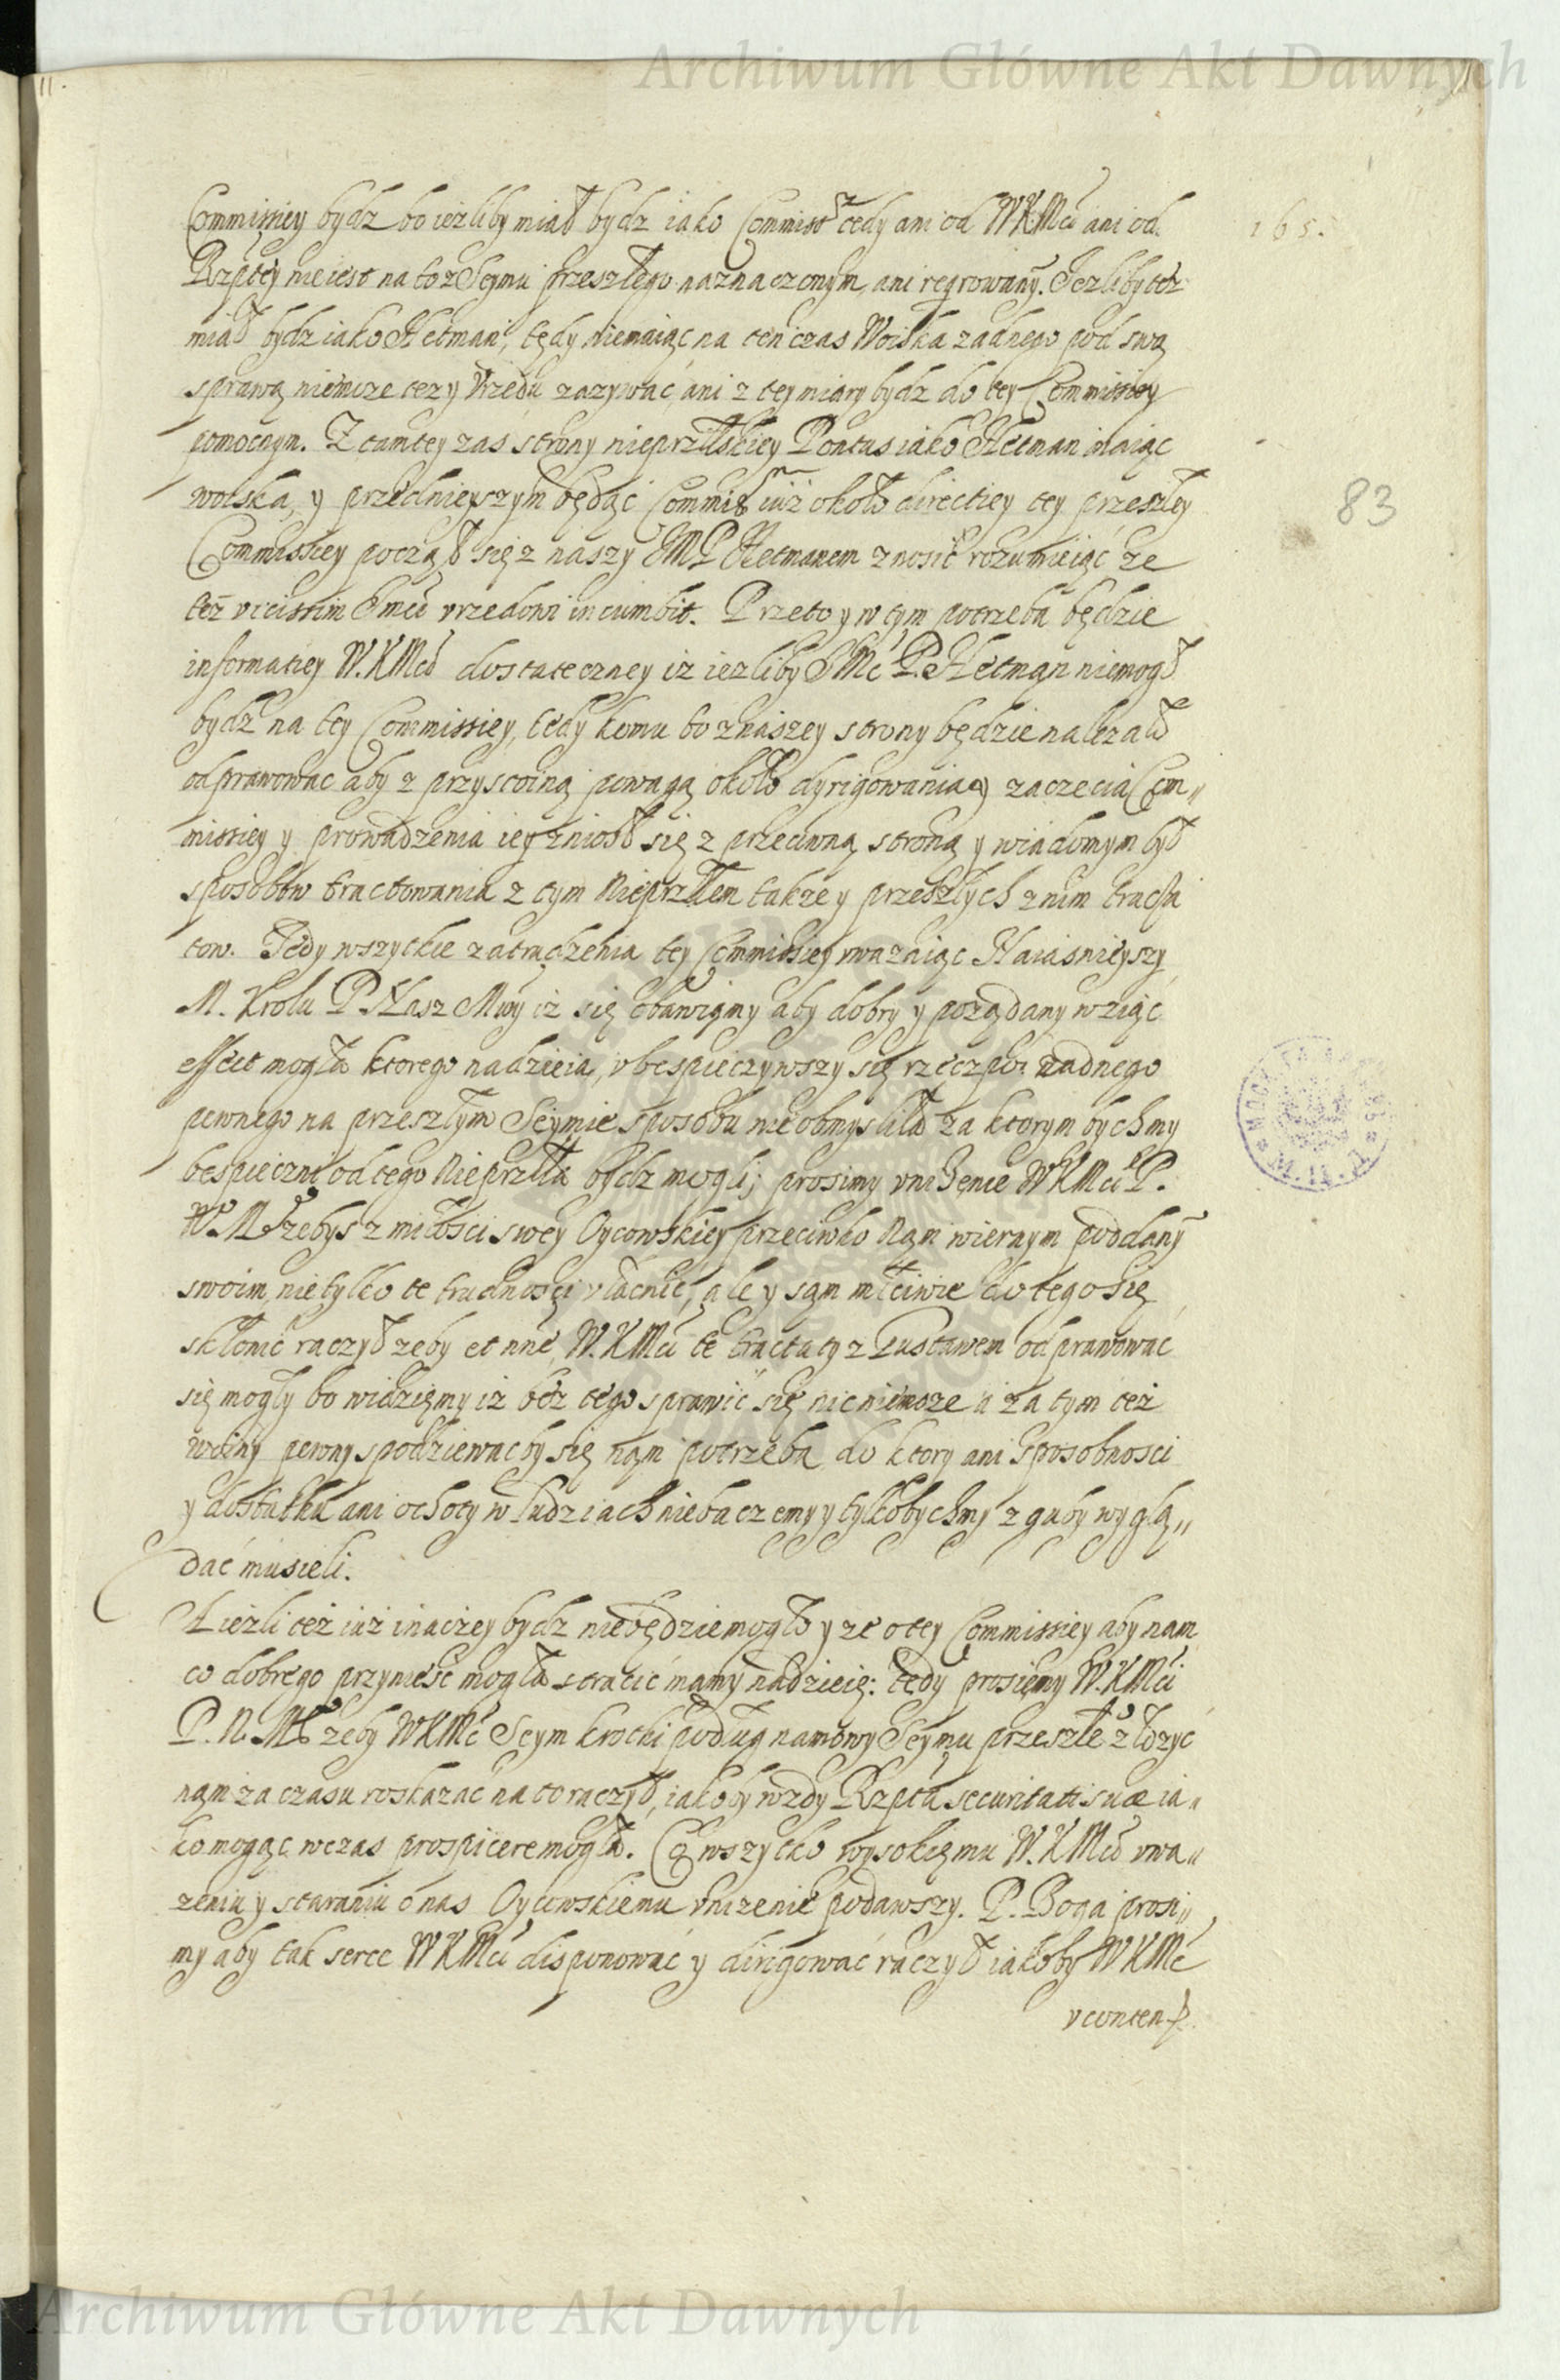 Archiwum Główne Akt Dawnych
165.
Commissiey bydz bo iezliby miał bydz iako Commiss tedy ani od WKMci ani od
Rzptey nie iest na to z Seymu przeszłego naznaczonym, ani reqrowany. Jezliby też
miał bydz iako Hetman, tedy niemaiąc na ten czas Woiska zadnego pod swą
sprawą niemoze tez y Vrzedu zazywać, ani z tey miary bydz do tey Commissiey
pomocnym. Z tamtey zas strony nieprzilskiey Pontus iako Hetman maiąc
83
woiska, y przednieyszym będąc Commiss iuż około directiey tey przeszłey
Commissiey począł się z naszy JMP Hetmanem znosić rozumieiąc że
też vicissim Jmci vrzedowi incumbit. Przeto y w tym potrzeba będzie
informatiey W.KMci dostateczney iz iezliby JMć P. Hetman niemogł
bydź na tey Commissiey, tedy komu to z naszey strony będzie nalezało
odprawować aby z przystoiną powagą około dyrigowania y zaczecia Com„
missiey y prowadzenia iey zniosł się z przeciwną stroną y wiadomym był
sposobow tractowania z tym Nieprzłem takze y przeszłych z nim tracta
tow. Tedy wszyckie zatrudzenia tey Commissiey uwazaiąc Naiasnieyszy
M. Krolu P. Nasz Mwy iz się obawiamy aby dobry y pożądany wziąć
effect mogła ktorego nadzieią, vbespieczywszy się rzeczpo: zadnego
pewnego na przeszłym Seymie sposobu nie obmysliła za ktorym bychmy
bespieczni od tego Nieprzła bydz mogli; prosimy vniżenie WKMci P.
N. M żebys z miłości swey Oycowskiey przeciwko Nam wiernym poddany
swoim, nie tylko te trudnosci vłacnić, ale y sam młciwie do tego się
skłonić raczył zeby et nne W.KMci te tractaty z Gustawem odprawować
się mogły bo widziemy iż bez tego sprawić się nic niemoze a za tym też
woiny pewny spodziewac by się nam potrzeba do ktory ani sposobnosci
y dostatku ani ochoty w ludziach niebaczemy y tylkobychmy zguby wyglą„
dać musieli.
A iezli też iuż inaczey bydz niebędzie mogło y ze o tey Commissiey aby nam
co dobrego przynieść mogła stracić mamy nadzieię: tedy prosiemy W.KMci
P. N. M żeby WKMć Seym krotki podług namowy Seymu przeszłe złożyć
nam za czasu roskazać na to raczył, iakoby wzdy Rzpta securitati suæ ia„
ko mogąc wczas prospicere mogła. Co wszytko wysokiemu W.KMci vwa„
zeniu y staraniu o nas Oycowskiemu vnizenie podawszy. P. Boga prosi„
my aby tak serce WKMci disponować y dirigować raczył iakoby WKMć
vconten
Archiwum Główne Akt Dawnych